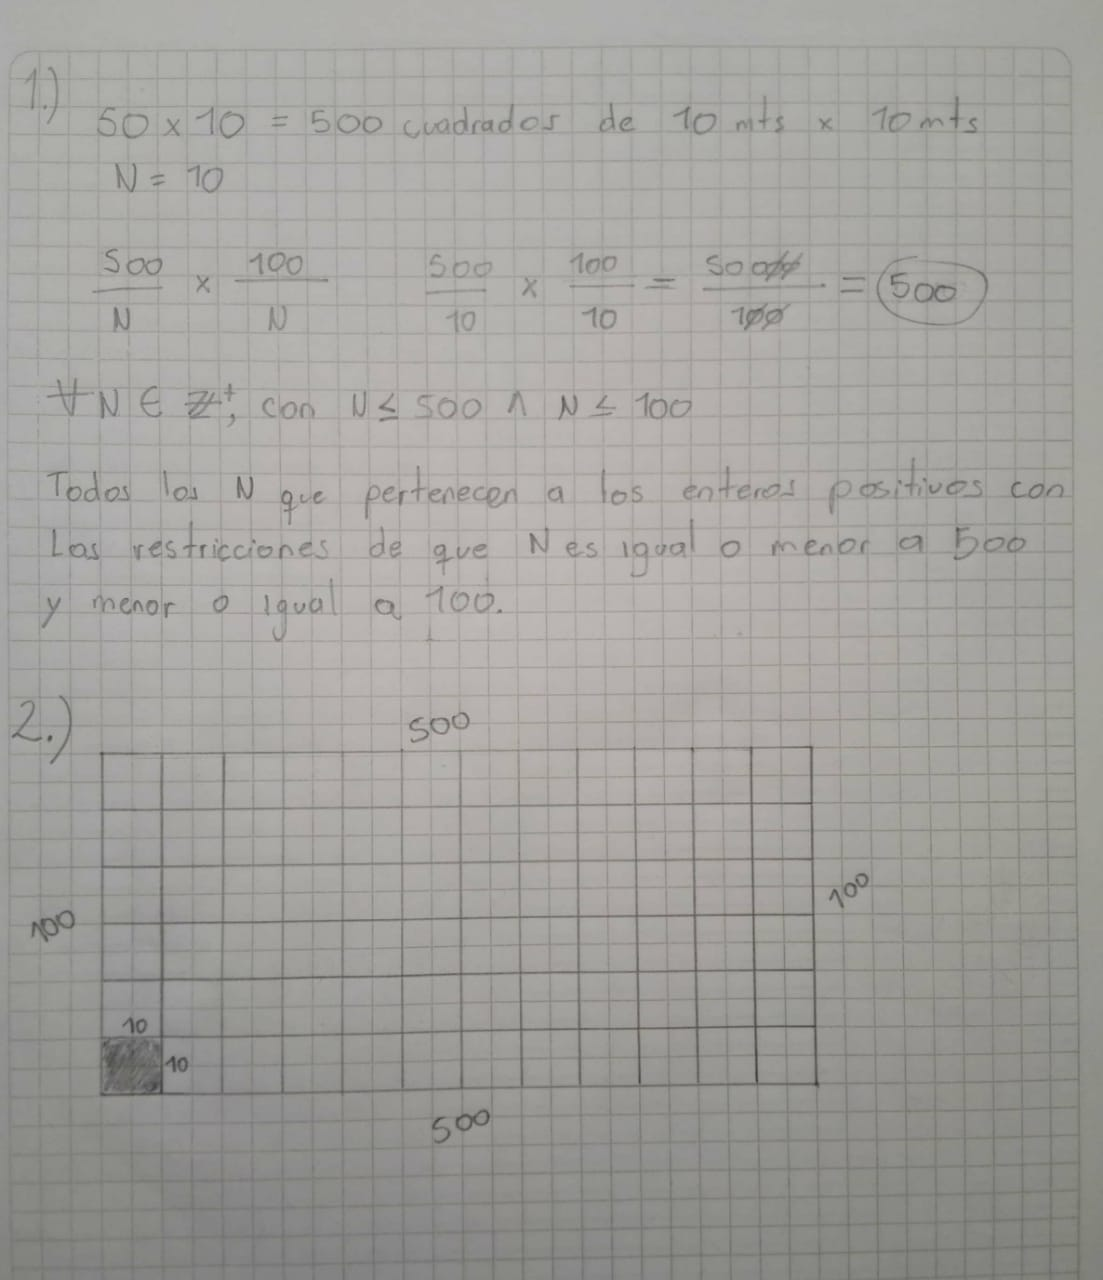 1.)
50 x 10 = 500 cuadrados de 10 mts x 10 mts
N = 10
500/N x 100/N 500/10 x 100/10 = 50000/100 = 500
∀ N ∈ Z⁺, con N ≤ 500 ∧ N ≤ 100
Todos los N que pertenecen a los enteros positivos con
Las restricciones de que N es igual o menor a 500
y menor o igual a 100.
2.)
500
100
100
10
10
500